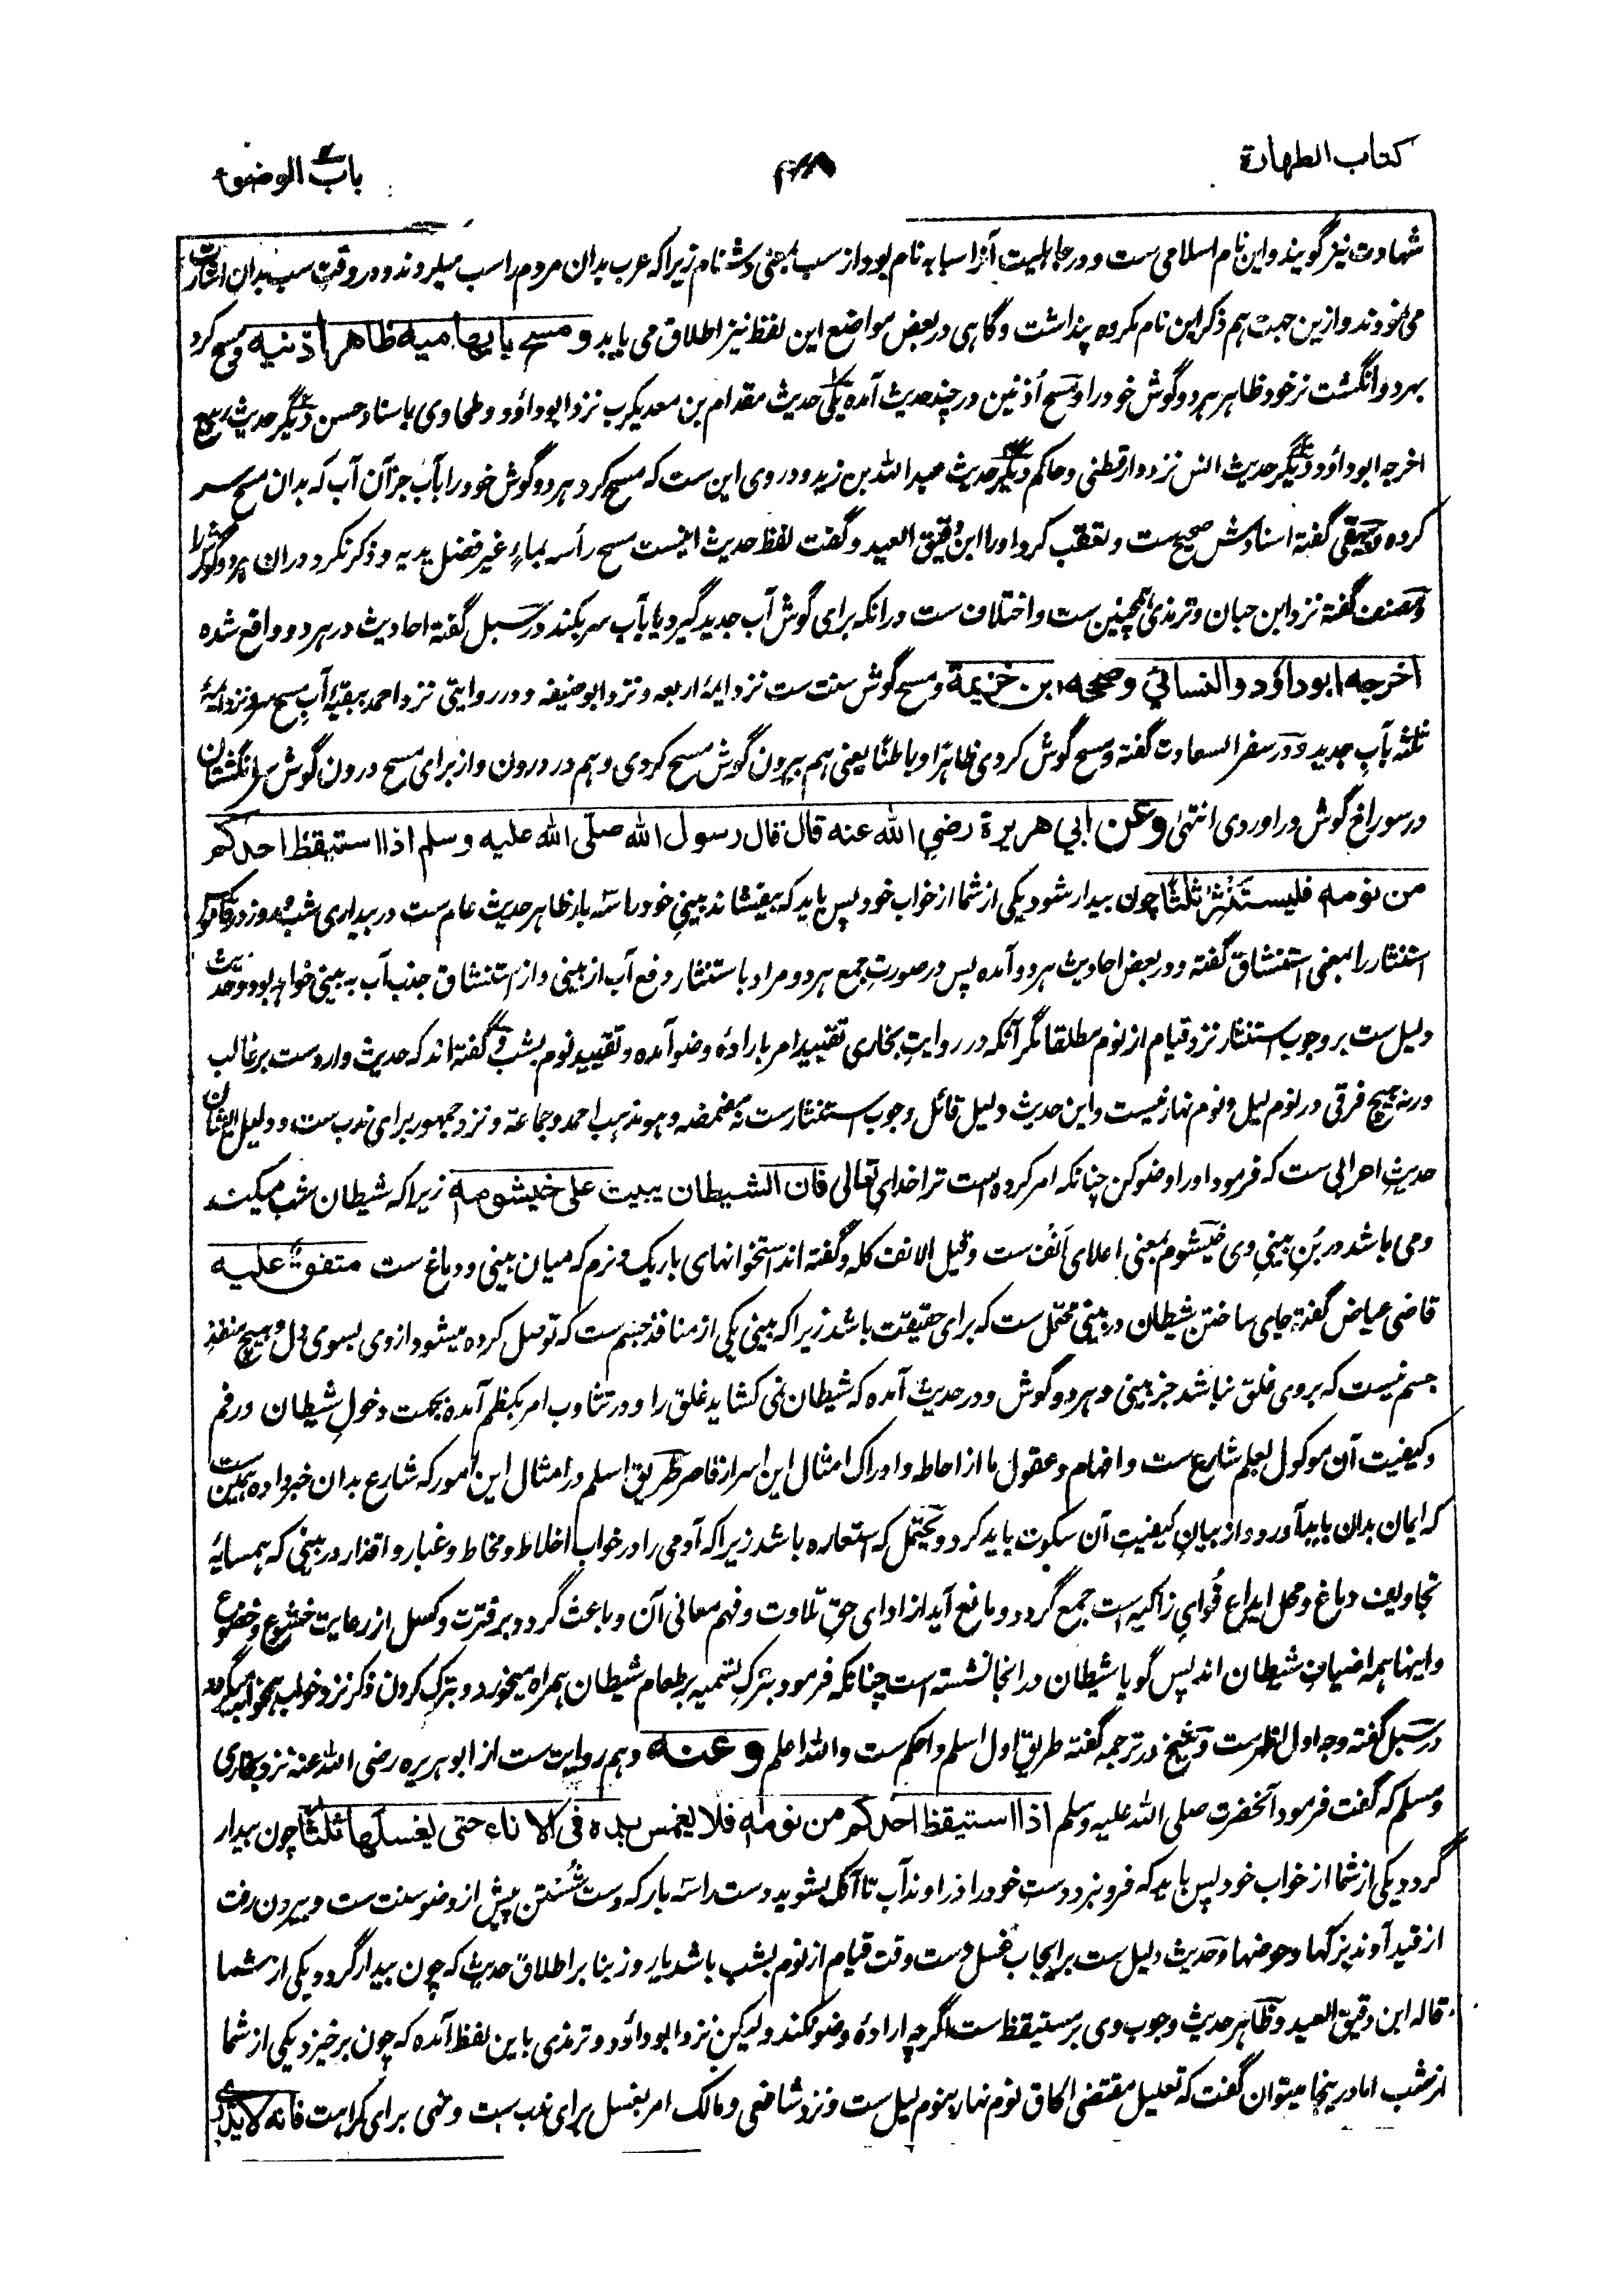 كتاب الطهارة
باب الوضوء
شهادت نیز گویند و این نام اسلامی ست و در جاهلیت آنرا سبابه نام بود از سب بمعنی دشنام زیرا که عرب بدان مردم را سب میکردند و در وقت سب بدان اشارت
می نمودند و ازین جهت هم ذکر این نام مکروه پنداشت و گاهی در بعض مواضع این لفظ نیز اطلاق می یابد و مسح بابهاميه ظاهر اذنيه و مسح کرد
بهر دو انگشت نر خود ظاهر هر دو گوش خود را و مسح اُذنین در چند حدیث آمده یکی حدیث مقدام بن معدیکرب نزد ابو داؤد و طحاوی باسناد حسن دیگر حدیث ربیع
اخرجه ابو داؤد دیگر حدیث انس نزد دارقطنی و حاکم دیگر حدیث عبد الله بن زید و در وی این ست که مسح کرد هر دو گوش خود را بآب جز آن آب که بدان مسح سر
کرده و بیهقی گفته اسنادش صحیح ست و تعقب کرد او را ابن دقیق العید و گفت لفظ حدیث اینست مسح رأسه بماءٍ غیر فضل یدیه و ذکر نکرد در ان هر دو گوش را
و مصنف گفته نزد ابن حبان و ترمذی همچنین ست و اختلاف ست در انکه برای گوش آب جدید گیرد یا بآب سر بکند در سبل گفته احادیث در هر دو واقع شده
اخرجه ابو داؤد والنسائي وصححه ابن خزيمة و مسح گوش سنت ست نزد ایمهٔ اربعه و نزد ابو حنیفه و در روایتی نزد احمد ببقیهٔ آبِ مسح سر و نزد ایمهٔ
ثلثه بآبِ جدید و در سفر السعادت گفته و مسح گوش کردی ظاهرًا و باطنًا یعنی هم بیرون گوش مسح کردی و هم در درون و از برای مسح درون گوش سر انگشتان
در سوراخ گوش در آوردی انتهی وعن ابي هريرة رضي الله عنه قال قال رسول الله صلى الله عليه وسلم اذا استيقظ احدكم
من نومه فليستنثر ثلثا چون بیدار شود یکی از شما از خواب خود پس باید که بیفشاند بینیِ خود را سه بار ظاهر حدیث عام ست در بیداری شب و روز و در قاموس
استنثار را بمعنی استنشاق گفته و در بعض احادیث هر دو آمده پس در صورتِ جمع هر دو مراد باستنثار دفع آب از بینی و از استنشاق جذب آب به بینی خواهد بود و حدیث
دلیل ست بر وجوب استنثار نزد قیام از نوم مطلقا مگر آنکه در روایتِ بخاری تقیید امر بارادهٔ وضو آمده و تقیید نوم بشب و گفته اند که حدیث وارد ست بر غالب
ورنه هیچ فرقی در نوم لیل و نوم نهار نیست و این حدیث دلیل قائل وجوب استنثار ست نه مضمضه و هو مذهب احمد و جماعة و نزد جمهور برای ندب ست و دلیل ایشان
حدیثِ اعرابی ست که فرمود او را وضو کن چنانکه امر کرده است ترا خدای تعالی فان الشيطان يبيت على خيشومه زیرا که شیطان شب میکند
و می باشد در بُنِ بینیِ وی خیشوم بمعنی اعلای اَنف ست و قیل الانف کله و گفته اند استخوانهای باریک و نرم که میان بینی و دماغ ست متفق عليه
قاضی عیاض گفته جای ساختن شیطان در بینی محتمل ست که برای حقیقت باشد زیرا که بینی یکی از منافذ جسم ست که توصل کرده میشود از وی بسوی دل و هیچ منفذ
جسم نیست که بروی غلق نباشد جز بینی و هر دو گوش و در حدیث آمده که شیطان نمی کشاید غلق را و در تثاوب امر بکظم آمده بجهت دخولِ شیطان در فم
و کیفیت آن موکول بعلم شارع ست و افهام و عقول ما از احاطه و ادراک امثال این اسرار قاصر طریق اسلم در امثال این امور که شارع بدان خبر داده همین ست
که ایمان بدان باید آورد و از بیانِ کیفیتِ آن سکوت باید کرد و یحتمل که استعاره باشد زیرا که آدمی را در خواب اخلاط و مخاط و غبار و اقذار در بینی که همسایهٔ
تجاویف دماغ و محل ایداع قُوایِ زاکیه است جمع گردد و مانع آید از ادای حقِ تلاوت و فهم معانی آن و باعث گردد بر فترت و کسل از رعایت خشوع و خضوع
و اینها همه اضیافِ شیطان اند پس گویا شیطان در انجا نشسته است چنانکه فرمود بترکِ تسمیه بر طعام شیطان همراه میخورد و بترک کردن ذکر نزد خواب همخوابه میگردد
در سبل گفته وجه اول اظهر ست و شیخ در ترجمه گفته طریق اول اسلم و احکم ست والله اعلم وعنه و هم روایت ست از ابو هریره رضی الله عنه نزد بخاری
و مسلم که گفت فرمود آنحضرت صلی الله علیه وسلم اذا استيقظ احدكم من نومه فلا يغمس يده في الاناء حتى يغسلها ثلثا چون بیدار
گردد یکی از شما از خواب خود پس باید که فرو نبرد دستِ خود را در اوندِ آب تا آنکه بشوید دست را سه بار که دست شستن پیش از وضو سنت ست و بیرون رفت
از قید آوند برکها و حوضها و حدیث دلیل ست بر ایجابِ غسل دست وقت قیام از نوم بشب باشد یا روز بنا بر اطلاق حدیث که چون بیدار گردد یکی از شما
قاله ابن دقیق العید و ظاهر حدیث وجوب وی بر مستیقظ ست اگرچه ارادهٔ وضو نکند ولیکن نزد ابو داؤد و ترمذی باین لفظ آمده که چون برخیزد یکی از شما
از شب اما درینجا میتوان گفت که تعلیل مقتضی الحاق نوم نهار بنوم لیل ست و نزد شافعی و مالک امر بغسل برای ندب ست و نهی برای کراهت فانه لا يدري